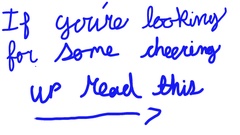 If you're looking
for some cheering
up read this